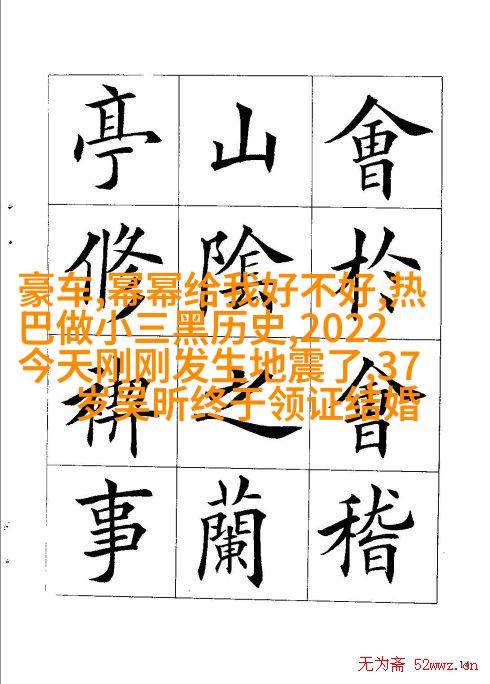 會於會稽
山陰之蘭
亭修禊事
豪车,幂幂给我好不好,热
巴做小三黑历史,2022
今天刚刚发生地震了,37
岁吴昕终于领证结婚
无为斋 52wwz.cn